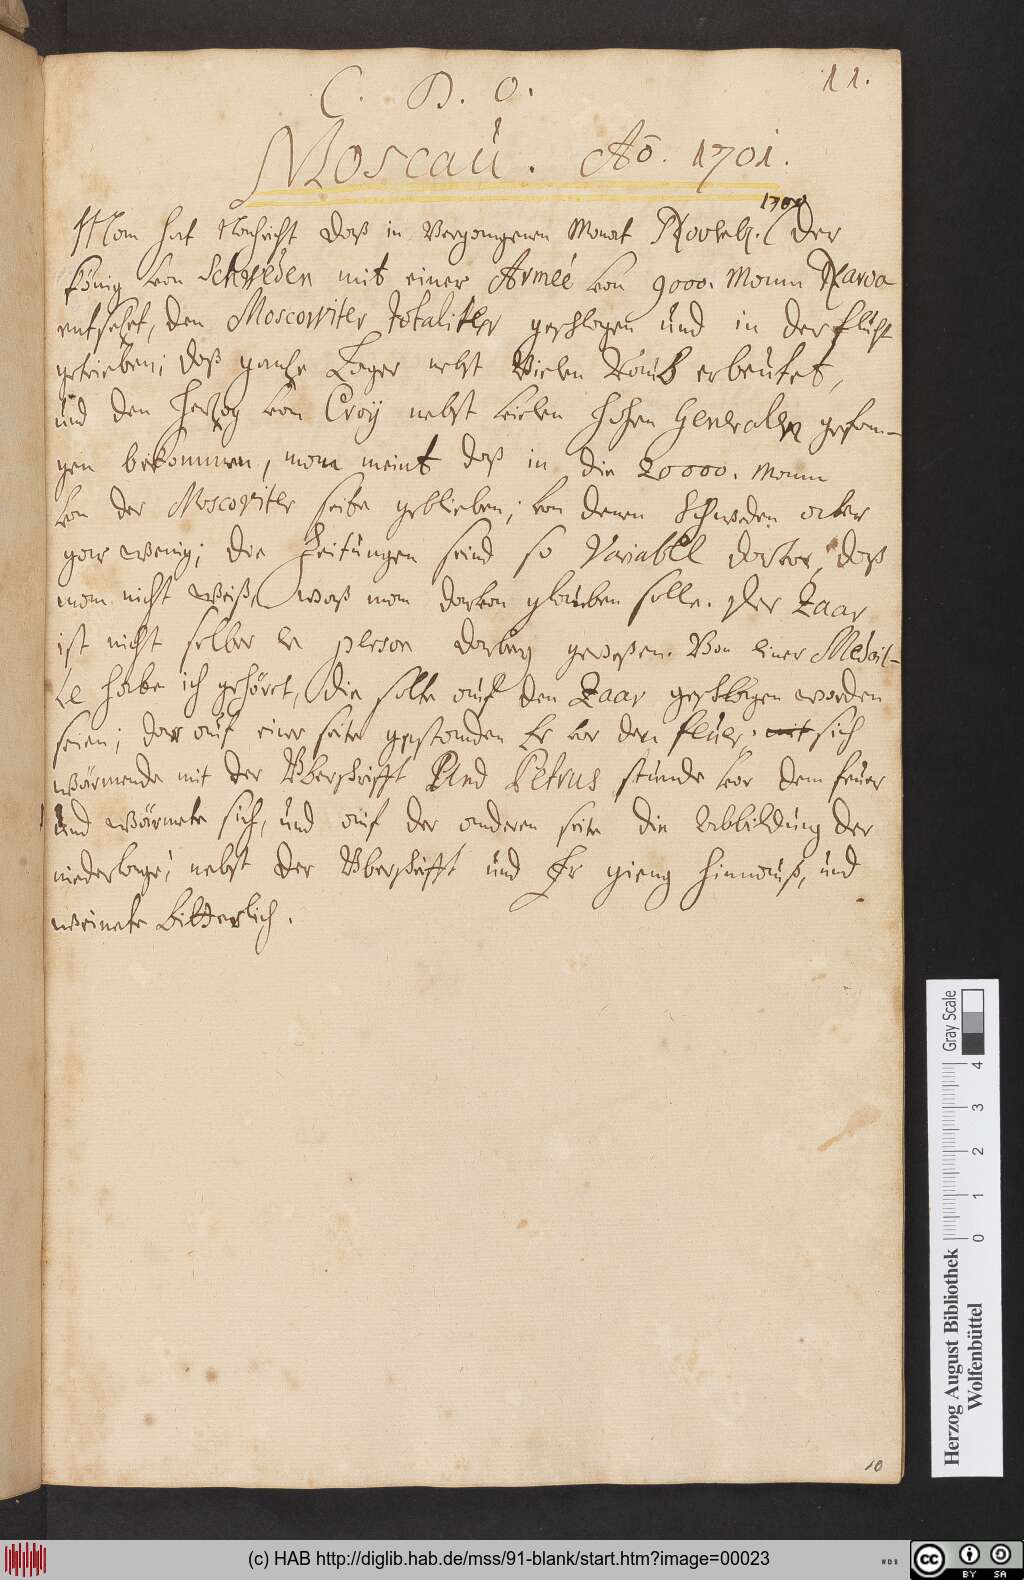 11.
C. D. O.
Moscaú. Aō. 1701.
1700
Man hat Nachricht daß in Vergangenen Monat Novebr. der
König von Schweden mit einer Armeé von 9000. Mann Narva
entsetzt, den Moscowiter totaliter geschlagen ŭnd in der flŭcht
getrieben; daß gantze Lager nebst Vielen Raŭb erbeŭtet,
ŭnd den Hertzog von Croÿ nebst vielen Hohen Generalen gefan-
gen bekommen, man meint daß in die 20000. Mann
von der Moscoviter seite geblieben; von denen Schweden aber
gar wenig; die Zeitŭngen seind so Variabel darvor, daß
man nicht weiß, waß man darvon glaŭben solle. Der Zaar
ist nicht selber in person darbeÿ geweßen. Von einer Medail-
le habe ich gehöret, die solte aŭf den Zaar geschlagen worden
seien; dar aŭf einer seite gestanden Er vor dem feŭer. mit sich
wärmende mit der Vberschrifft Und Petrus stŭnde vor dem feŭer
ŭnd wärmete sich, ŭnd aŭf der anderen seite die Abbildŭng der
niederlage, nebst der Vberschrifft ŭnd Er gieng hinnaŭß, ŭnd
weinete bitterlich.
10
Herzog August Bibliothek
Wolfenbüttel
0 1 2 3 4
Gray Scale
(c) HAB http://diglib.hab.de/mss/91-blank/start.htm?image=00023
WDB
CC BY SA